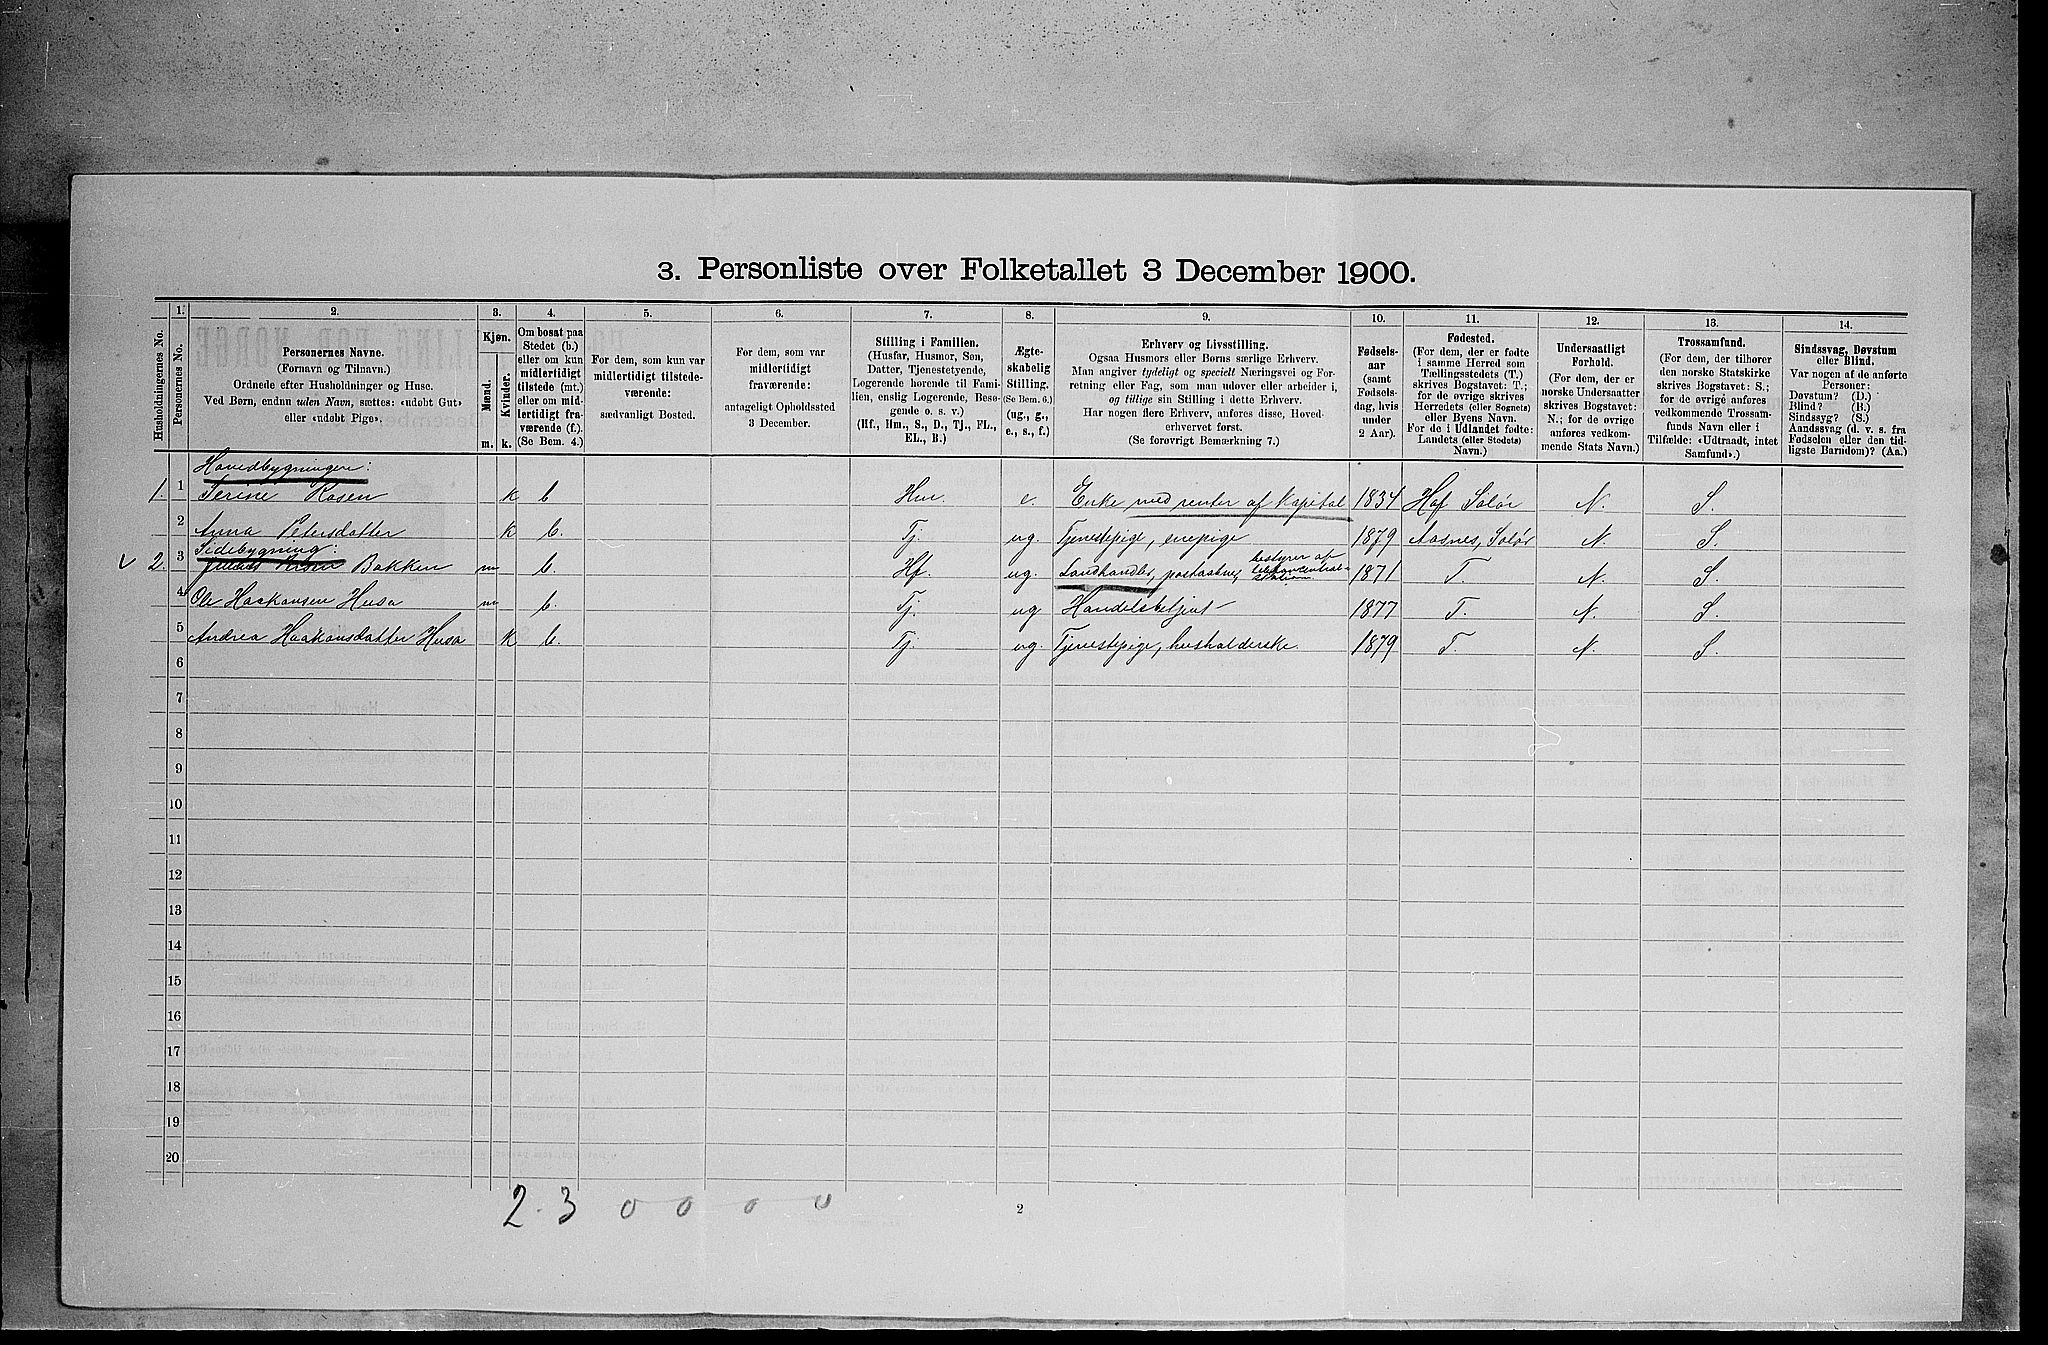 3. Personliste over Folketallet 3 December 1900.
Husholdningernes No.
1.
Personernes No.
2.
Personernes Navne.
(Fornavn og Tilnavn.)
Ordnede efter Husholdninger og Huse.
Ved Børn, endnu uden Navn, sættes: «udøbt Gut»
eller «udøbt Pige».
3.
Kjøn.
Mænd.
Kvinder.
m.
k.
4.
Om bosat paa
Stedet (b.)
eller om kun
midlertidigt
tilstede (mt.)
eller om mid-
lertidigt fra-
værende (f.).
(Se Bem. 4.)
5.
For dem, som kun var
midlertidigt tilstede-
værende:
sædvanligt Bosted.
6.
For dem, som var
midlertidigt
fraværende:
antageligt Opholdssted
3 December.
7.
Stilling i Familien.
(Husfar, Husmor, Søn,
Datter, Tjenestetyende,
Logerende hørende til Fami-
lien, enslig Logerende, Besø-
gende o. s. v.)
(Hf., Hm., S., D., Tj., FL.,
EL., B.)
8.
Ægte-
skabelig
Stilling.
(Se Bem. 6.)
(ug., g.,
e., s., f.)
9.
Erhverv og Livsstilling.
Ogsaa Husmors eller Børns særlige Erhverv.
Man angiver tydeligt og specielt Næringsvei og For-
retning eller Fag, som man udøver eller arbeider i,
og tillige sin Stilling i dette Erhverv.
Har nogen flere Erhverv, anføres disse, Hoved-
erhvervet først.
(Se forøvrigt Bemærkning 7.)
10.
Fødsels-
aar
(samt
Fødsels-
dag, hvis
under
2 Aar).
11.
Fødested.
(For dem, der er fødte
i samme Herred som
Tællingsstedets (T.)
skrives Bogstavet: T.;
for de øvrige skrives
Herredets (eller Sognets)
eller Byens Navn.
For de i Udlandet fødte:
Landets (eller Stedets)
Navn.)
12.
Undersaatligt
Forhold.
(For dem, der er
norske Undersaatter
skrives Bogstavet:
N.; for de øvrige
anføres vedkom-
mende Stats Navn.)
13.
Trossamfund.
(For dem, der tilhører
den norske Statskirke
skrives Bogstavet: S.;
for de øvrige anføres
vedkommende Trossam-
funds Navn eller i
Tilfælde: «Udtraadt, intet
Samfund».)
14.
Sindssvag, Døvstum
eller Blind.
Var nogen af de anførte
Personer:
Døvstum? (D.)
Blind? (B.)
Sindssyg? (S.)
Aandssvag (d. v. s. fra
Fødselen eller den tid-
ligste Barndom)? (Aa.)
Hovedbygningen:
1. 1 Terine Rosen k b Hm. e. Enke med renter af Kapital 1834 Hof Solør N. S.
2 Anna Petersdatter k b. Tj. ug. Tjenestepige, enepige 1879 Aasnes, Solør N. S.
Sidebygning:
v 2. 3 Bakken m b. Hf. ug. Landhandler, postaabner, bestyrer af telefoncentral-station 1871 T. N. S.
4 Ole Haakonsen Husa m b. Tj. ug Handelsbetjent 1877 T. N. S.
5 Andrea Haakonsdatter Husa k b. Tj. ug. Tjenestepige, husholderske. 1879 T. N. S.
6
7
8
9
10
11
12
13
14
15
16
17
18
19
20
2. 3 0 0 0 0
2